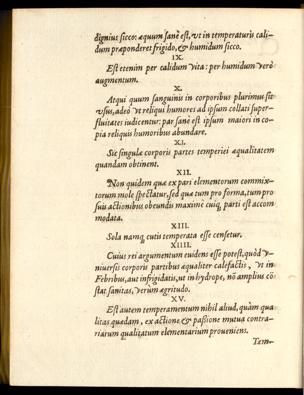 dignius sicco: æquum sanè est, vt in temperaturis cali-
dum præponderet frigido, & humidum sicco.
IX.
Est etenim per calidum vita: per humidum verò
augmentum.
X.
Atqui quum sanguinis in corporibus plurimus sit
vsus, adeò vt reliqui humores ad ipsum collati super-
fluitates iudicentur: par sanè est ipsum maiori in co-
pia reliquis humoribus abundare.
XI.
Sic singulæ corporis partes temperiei æqualitatem
quandam obtinent.
XII.
Non quidem quæ ex pari elementorum commix-
torum mole spectatur, sed quæ tum pro forma, tum pro
suis actionibus obeundis maximè cuiq; parti est accom
modata.
XIII.
Sola namq; cutis temperata esse censetur.
XIIII.
Cuius rei argumentum euidens esse potest, quòd v-
niuersi corporis partibus æqualiter calefactis, vt in
Febribus, aut infrigidatis, vt in hydrope, nō amplius cō
stat sanitas, verùm ægritudo.
XV.
Est autem temperamentum nihil aliud, quàm qua-
litas quædam, ex actione & passione mutua contra-
riarum qualitatum elementarium proueniens.
Tem-